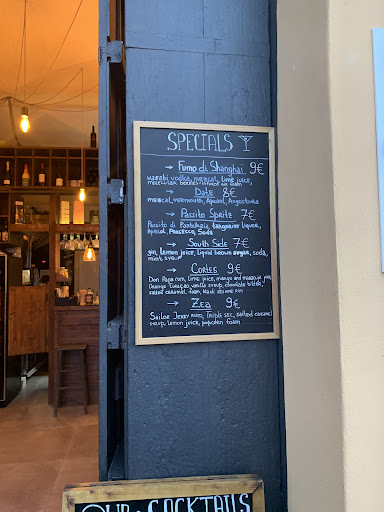 SPECIALS
→ Fumo di Shanghai 9€
wasabi vodka, mezcal, lime juice,
→ Date 8€
mezcal, vermouth, Aperol, Angostura
→ Passito Spritz 7€
Passito di Pantelleria, tangerine liquea,
Aperol, Prosecco, Soda
→ South Side 7€
gin, lemon juice, liquid brown sugar, soda,
mint syrup
→ Cortes 9€
Don Papa rum, lime juice, mango and maracuja puré,
Orange Curaçao, vanilla syrup, chocolate bitter,
salted caramel foam, black sesame rim
→ Zea 9€
Sailor Jerry rum, Triple sec, salted caramel
syrup, lemon juice, popcorn foam
OUR COCKTAILS